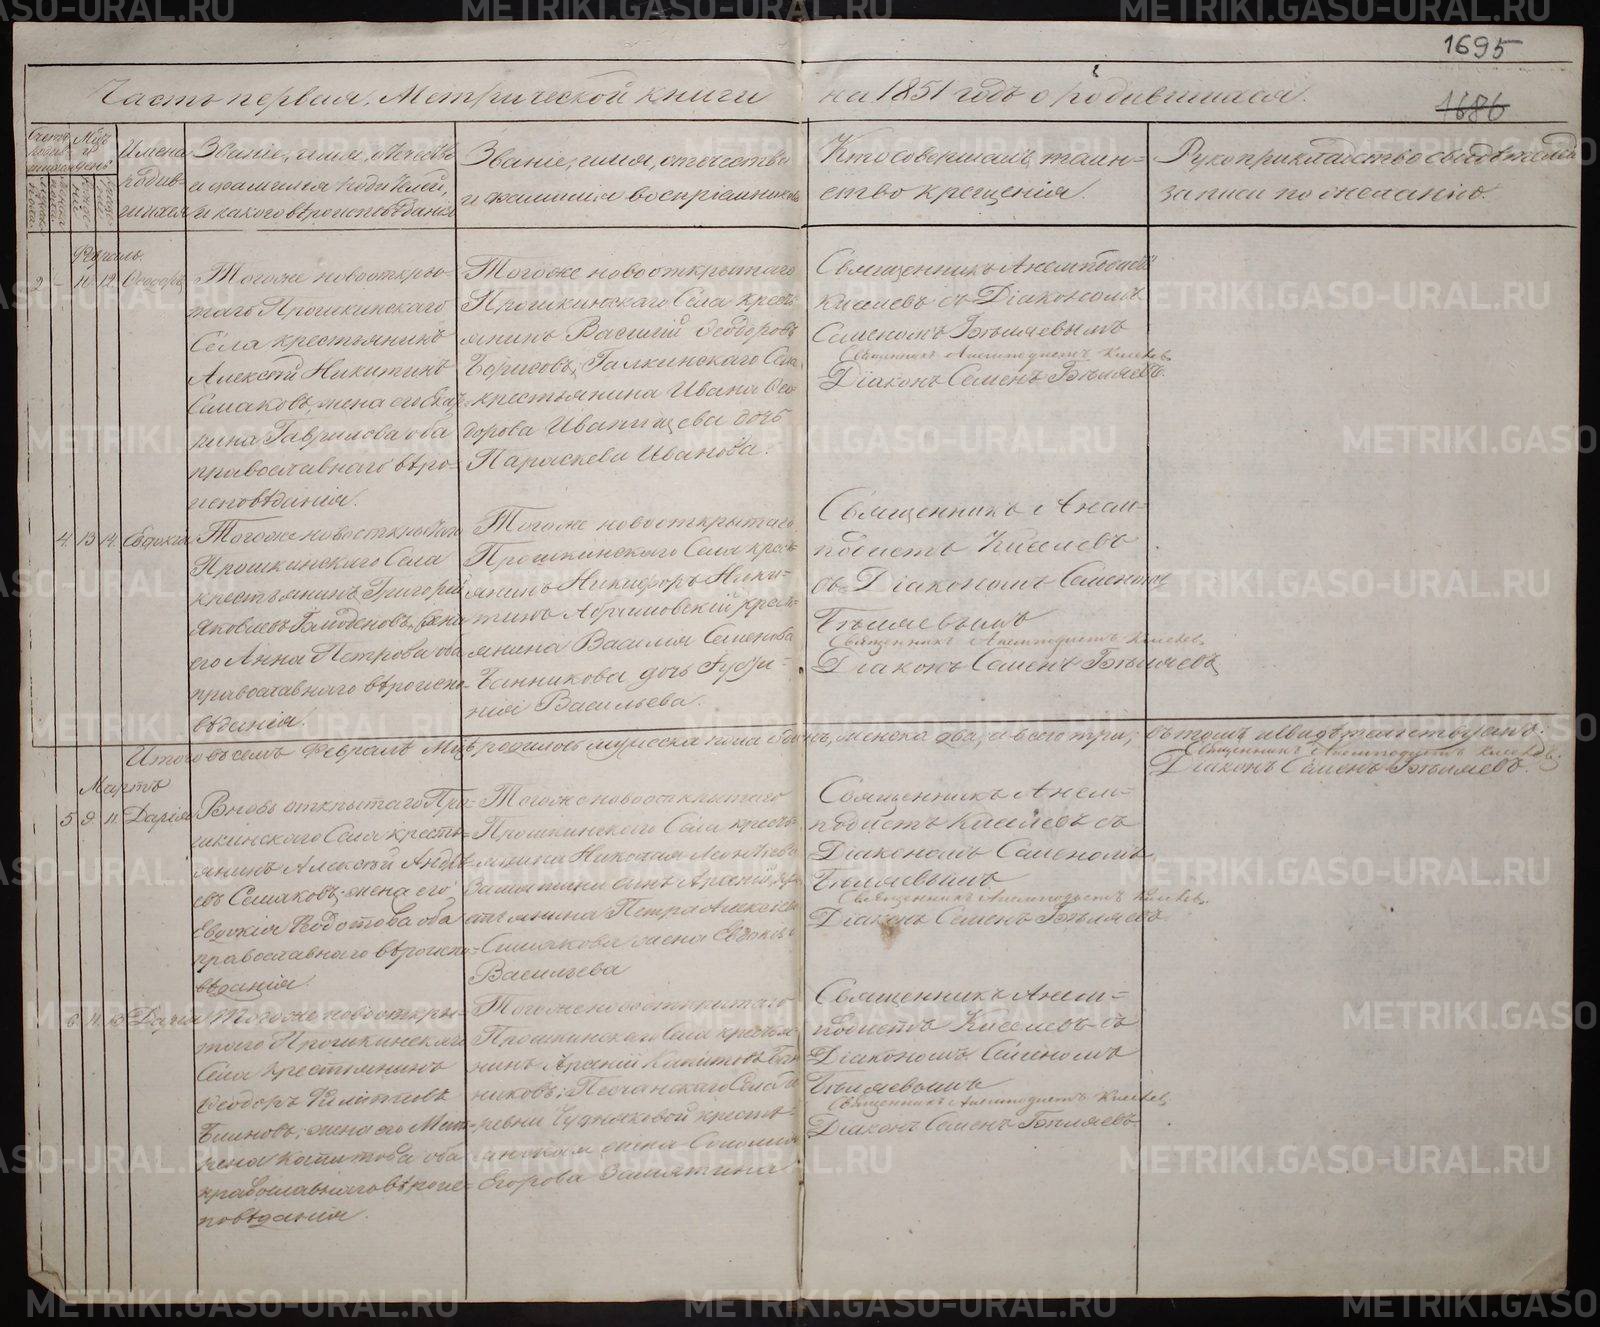 1695
1686
Часть первая, Метрической книги на 1851 годъ о родившихся.
Счетъ родившихся
Мѣсяцъ и день
Имена родив-
шихся
Званіе, имя, отечество
и фамилія родителей,
и какого вѣроисповѣданія
Званіе, имя, отечество
и фамилія воспріемниковъ
Кто совершалъ таин-
ство крещенія.
Рукоприкладство свидѣтелей
записи по желанію.
Февраль.
2 - 11. 12. Ѳеодоръ
Тогоже новооткры-
таго Прошкинскаго
Села крестьянинъ
Алексѣй Никитинъ
Симаковъ, жена его
Гаврилова оба
православнаго вѣро-
исповѣданія.
Тогоже новооткрытаго
Прошкинскаго Села кресть-
янинъ Василій Ѳеодоровъ
Борисовъ, Галкинскаго Села
крестьянина Ивана Ѳео-
дорова Иванищева дочь
Параскева Иванова.
Священникъ Анемподистъ
Киселевъ съ Діакономъ
Семеномъ Бѣляевымъ
Священникъ Анемподистъ Киселевъ
Діаконъ Семенъ Бѣляевъ.
4. 13 14. Евдокія
Тогоже новооткрытаго
Прошкинскаго Села
крестьянинъ Григорій
Яковлевъ жена
его Анна Петрова оба
православнаго вѣроиспо-
вѣданія.
Тогоже новооткрытаго
Прошкинскаго Села крест-
янинъ Никифоръ Ники-
тинъ крест-
янина Василія Семенова
Банникова дочь
Васильева.
Священникъ Анем-
подистъ Киселевъ
съ Діакономъ Семеномъ
Бѣляевымъ
Священникъ Анемподистъ Киселевъ.
Діаконъ Семенъ Бѣляевъ
Итого въ семъ Февралѣ Мцѣ родилось мужеска пола одинъ, женска два, а всего три; въ томъ и свидѣтельствуемъ.
Священникъ Анемподистъ Киселевъ
Діаконъ Семенъ Бѣляевъ.
Мартъ
5 9. 11. Дарія
Вновь открытаго Про-
шкинскаго Села кресть-
янинъ Алексѣй Андре-
евъ Симаковъ; жена его
Евдокія Ѳедотова оба
православнаго вѣроиспо-
вѣданія.
Тогоже новооткрытаго
Прошкинскаго Села кресть-
янина Николая
Замятина сынъ Арсеній, кре-
стьянина Петра Алексѣева
Симакова жена Евдокія
Васильева
Священникъ Анем-
подистъ Киселевъ съ
Діакономъ Семеномъ
Бѣляевымъ
Священникъ Анемподистъ Киселевъ.
Діаконъ Семенъ Бѣляевъ.
6 11. 13 Дарія
Тогоже новооткры-
таго Прошкинскаго
Села крестьянинъ
Ѳеодоръ Филатовъ
жена его Мат-
рена Капитова оба
православнаго вѣроис-
повѣданія.
Тогоже новооткрытаго
Прошкинскаго Села крестья-
нинъ Арсеній Капитовъ Бан-
никовъ; Песчанскаго Села де-
ревни Чудняковой кресть-
жена Соломія
Егорова Замятина
Священникъ Анем-
подистъ Киселевъ съ
Діакономъ Семеномъ
Бѣляевымъ
Священникъ Анемподистъ Киселевъ
Діаконъ Семенъ Бѣляевъ
METRIKI.GASO-URAL.RU